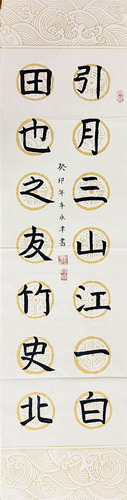 引月三山江一白
田也之友竹史北
癸卯年李永津書